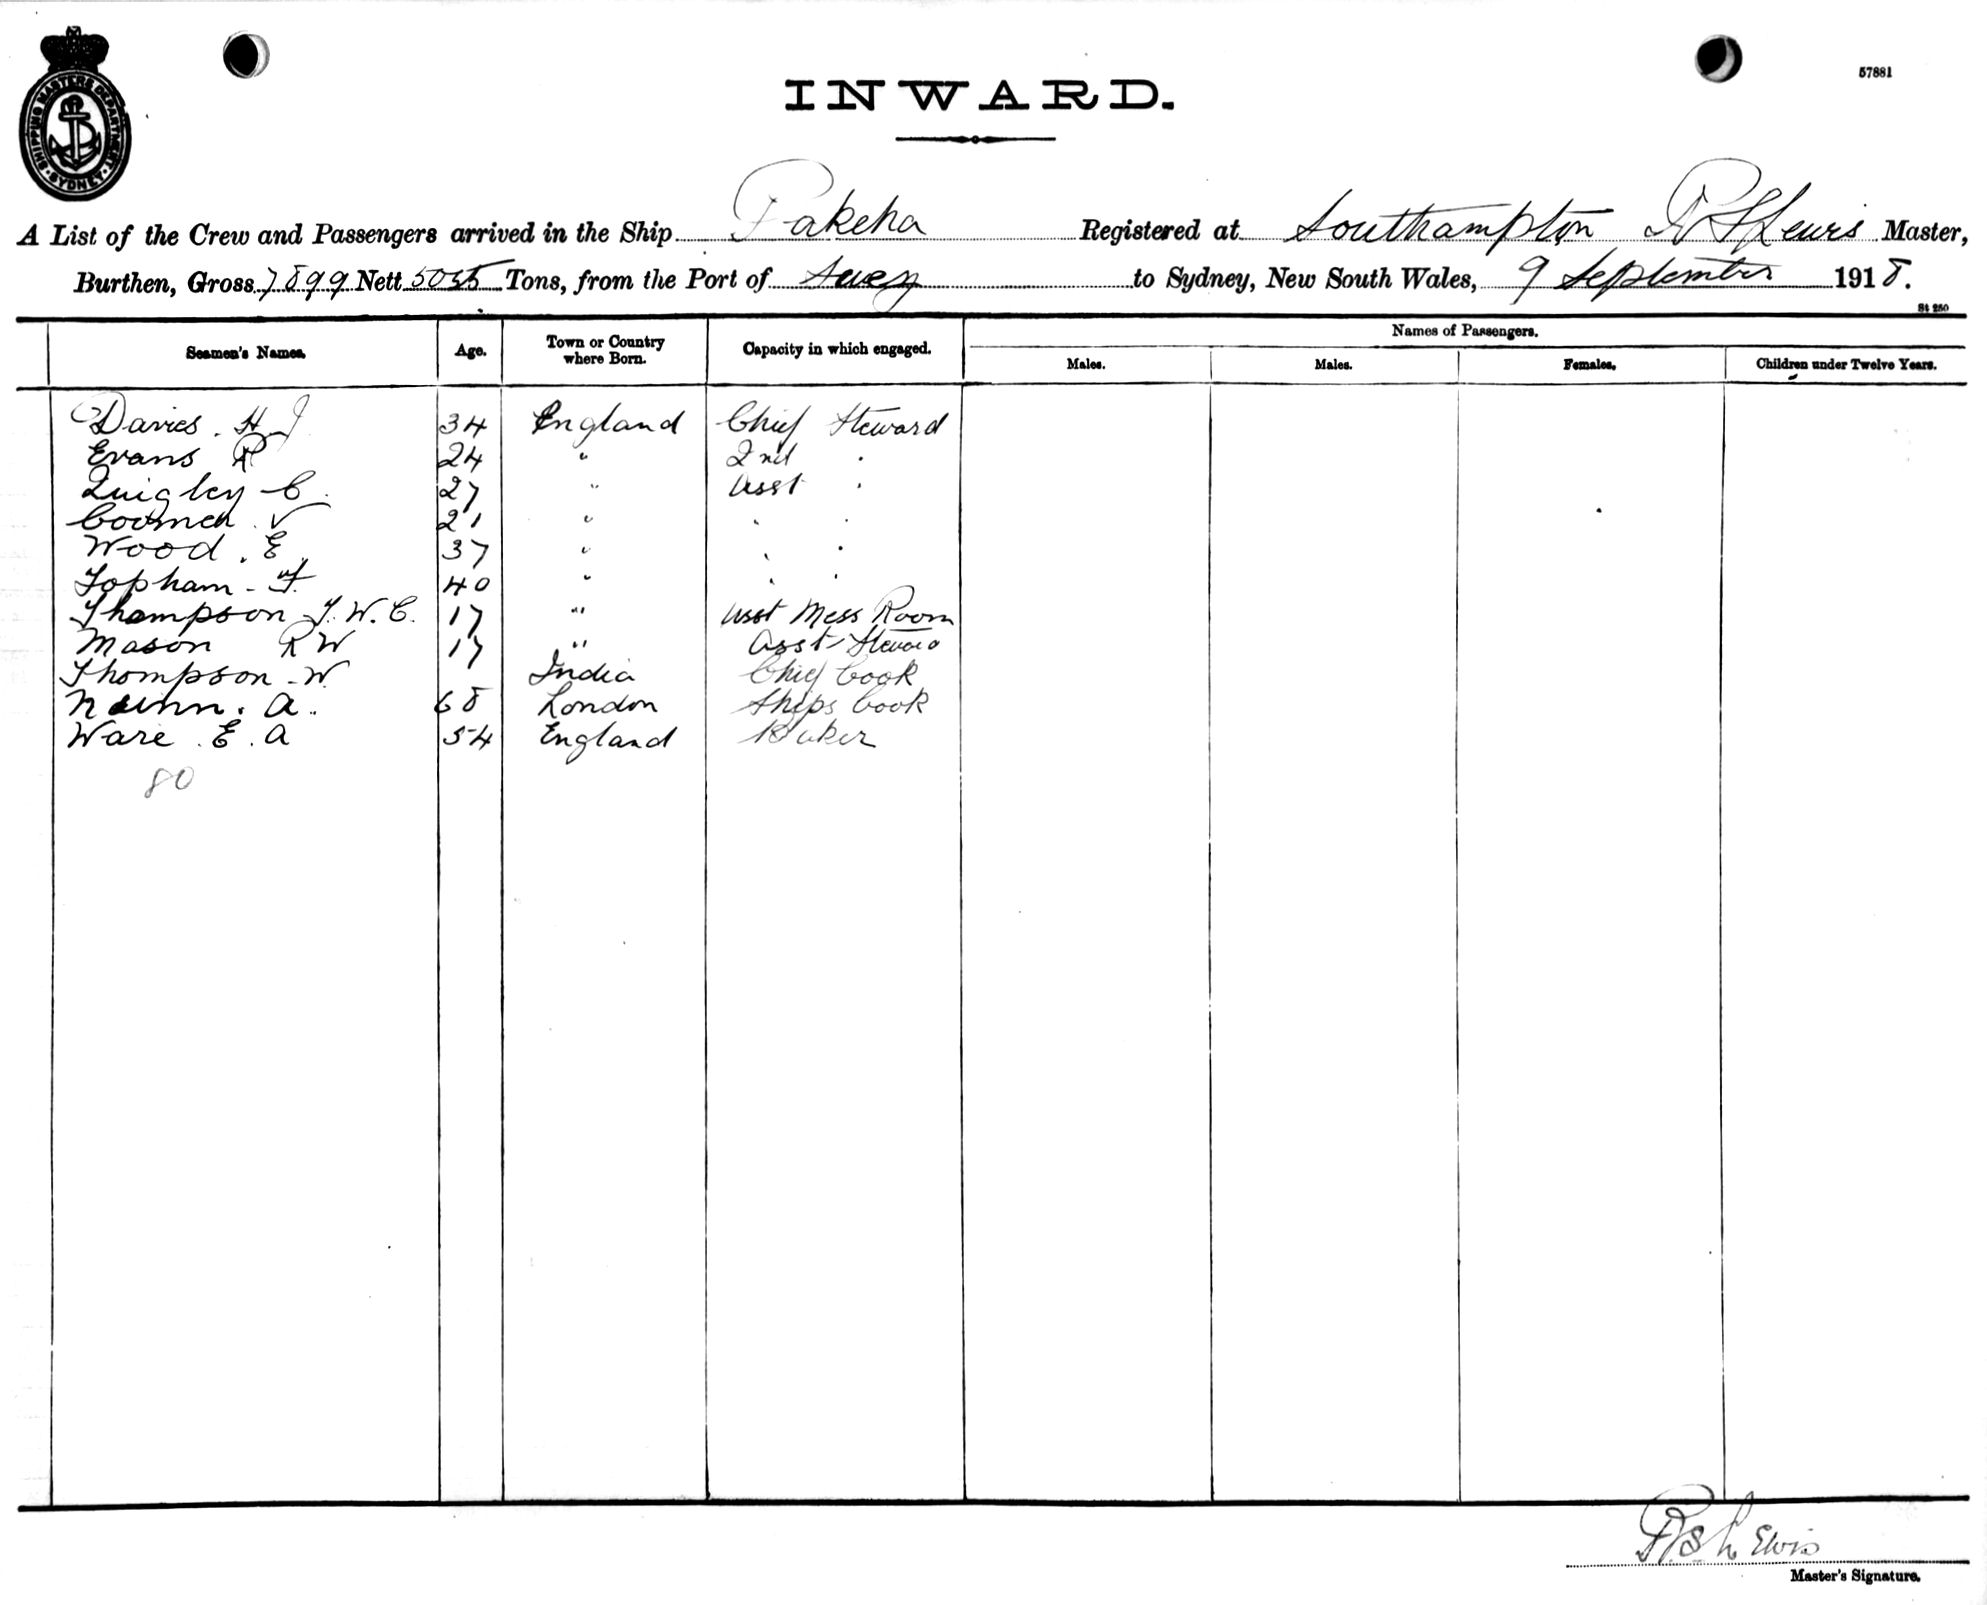 SHIPPING MASTERS DEPARTMENT · SYDNEY ·
57881
INWARD.
A List of the Crew and Passengers arrived in the Ship Pakeha Registered at Southampton R S Lewis Master,
Burthen, Gross 7899 Nett 5055 Tons, from the Port of Suez to Sydney, New South Wales, 9 September 1918.
St 280
Seamen's Names. Age. Town or Country where Born. Capacity in which engaged. Names of Passengers.
Males. Males. Females. Children under Twelve Years.
Davies. H J 34 England Chief Steward
Evans R 24 " 2nd "
Quigley C. 27 " Asst "
V 21 " " "
Wood. E. 37 " " "
Topham - F. 40 " " "
Thompson J. W. C. 17 " Asst Mess Room
Mason R W 17 " Asst Steward
Thompson - W. India Chief Cook
A. 68 London Ships Cook
Ware. E. A 54 England Baker
80
R S Lewis
Master's Signature.